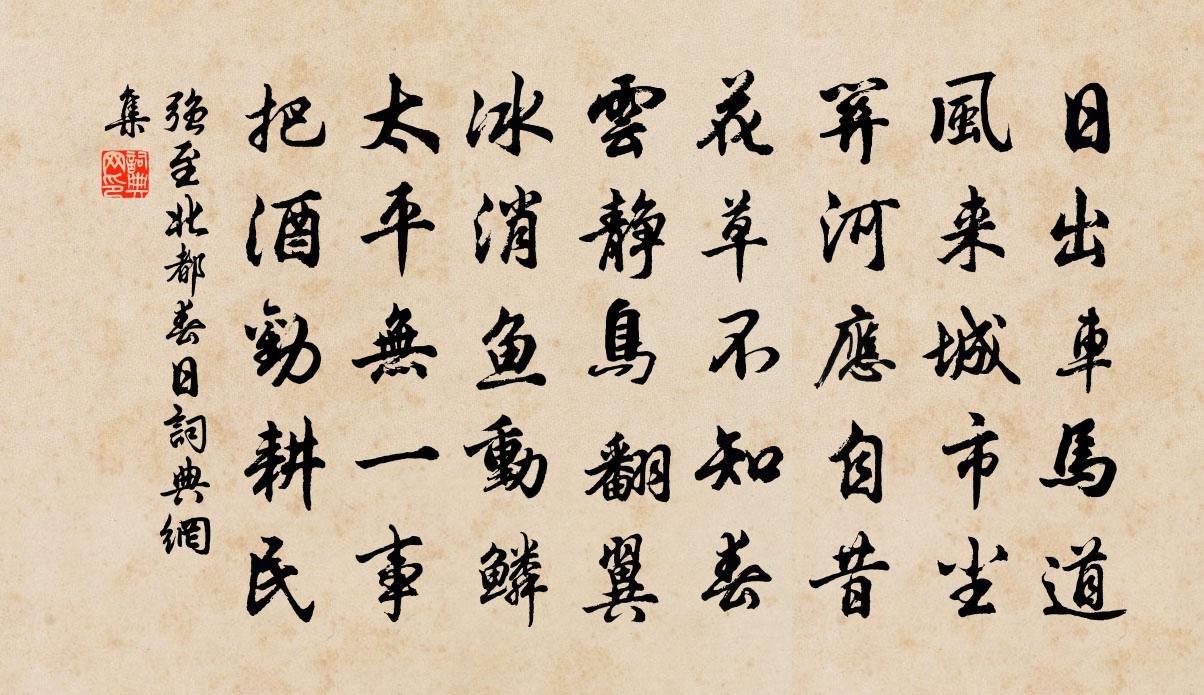 日出車馬道
風来城市尘
關河應自昔
花草不知春
雲静鳥翻翼
冰消鱼動鳞
太平無一事
把酒勸耕民
强至北都春日詞典網
集
詞典网印